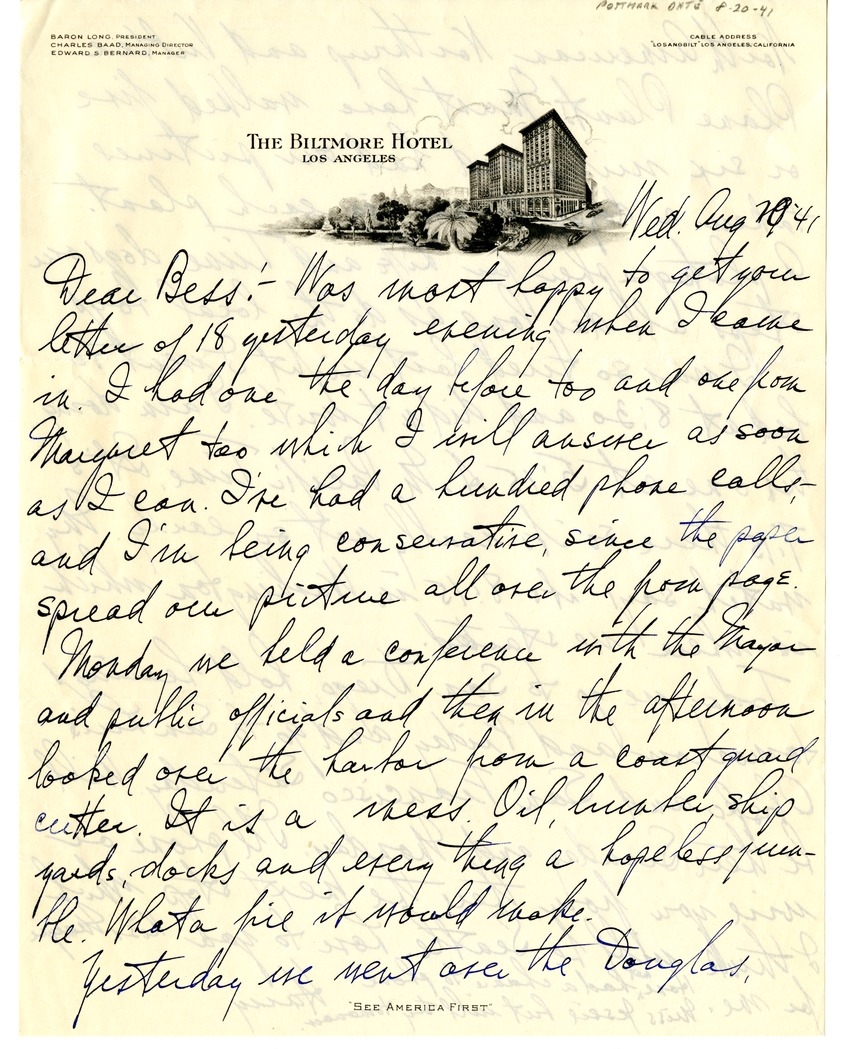 POSTMARK DATE 8-20-41
BARON LONG, PRESIDENT
CHARLES BAAD, MANAGING DIRECTOR
EDWARD S. BERNARD, MANAGER
CABLE ADDRESS
"LOSANGBILT" LOS ANGELES, CALIFORNIA
THE BILTMORE HOTEL
LOS ANGELES
Wed. Aug 20 '41
Dear Bess:- Was most happy to get your
letter of 18 yesterday evening when I came
in. I had one the day before too and one from
Margaret too which I will answer as soon
as I can. I've had a hundred phone calls,-
and I'm being conservative, since the paper
spread our picture all over the front page.
Monday we held a conference with the Mayor
and public officials and then in the afternoon
looked over the harbor from a coast guard
cutter. It is a mess. Oil, lumber, ship
yards, docks and every thing a hopeless jum-
ble. What a fire it would make.
Yesterday we went over the Douglas,
"SEE AMERICA FIRST"